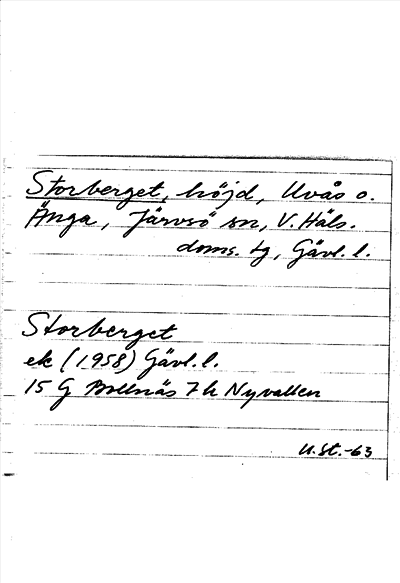 Storberget, höjd, Uvås o.
Änga, Järvsö sn, V. Häls.
doms. tg, Gävl. l.
Storberget
ek (1958) Gävl. l.
15 G Bollnäs 7 h Nyvallen
U.St.-63